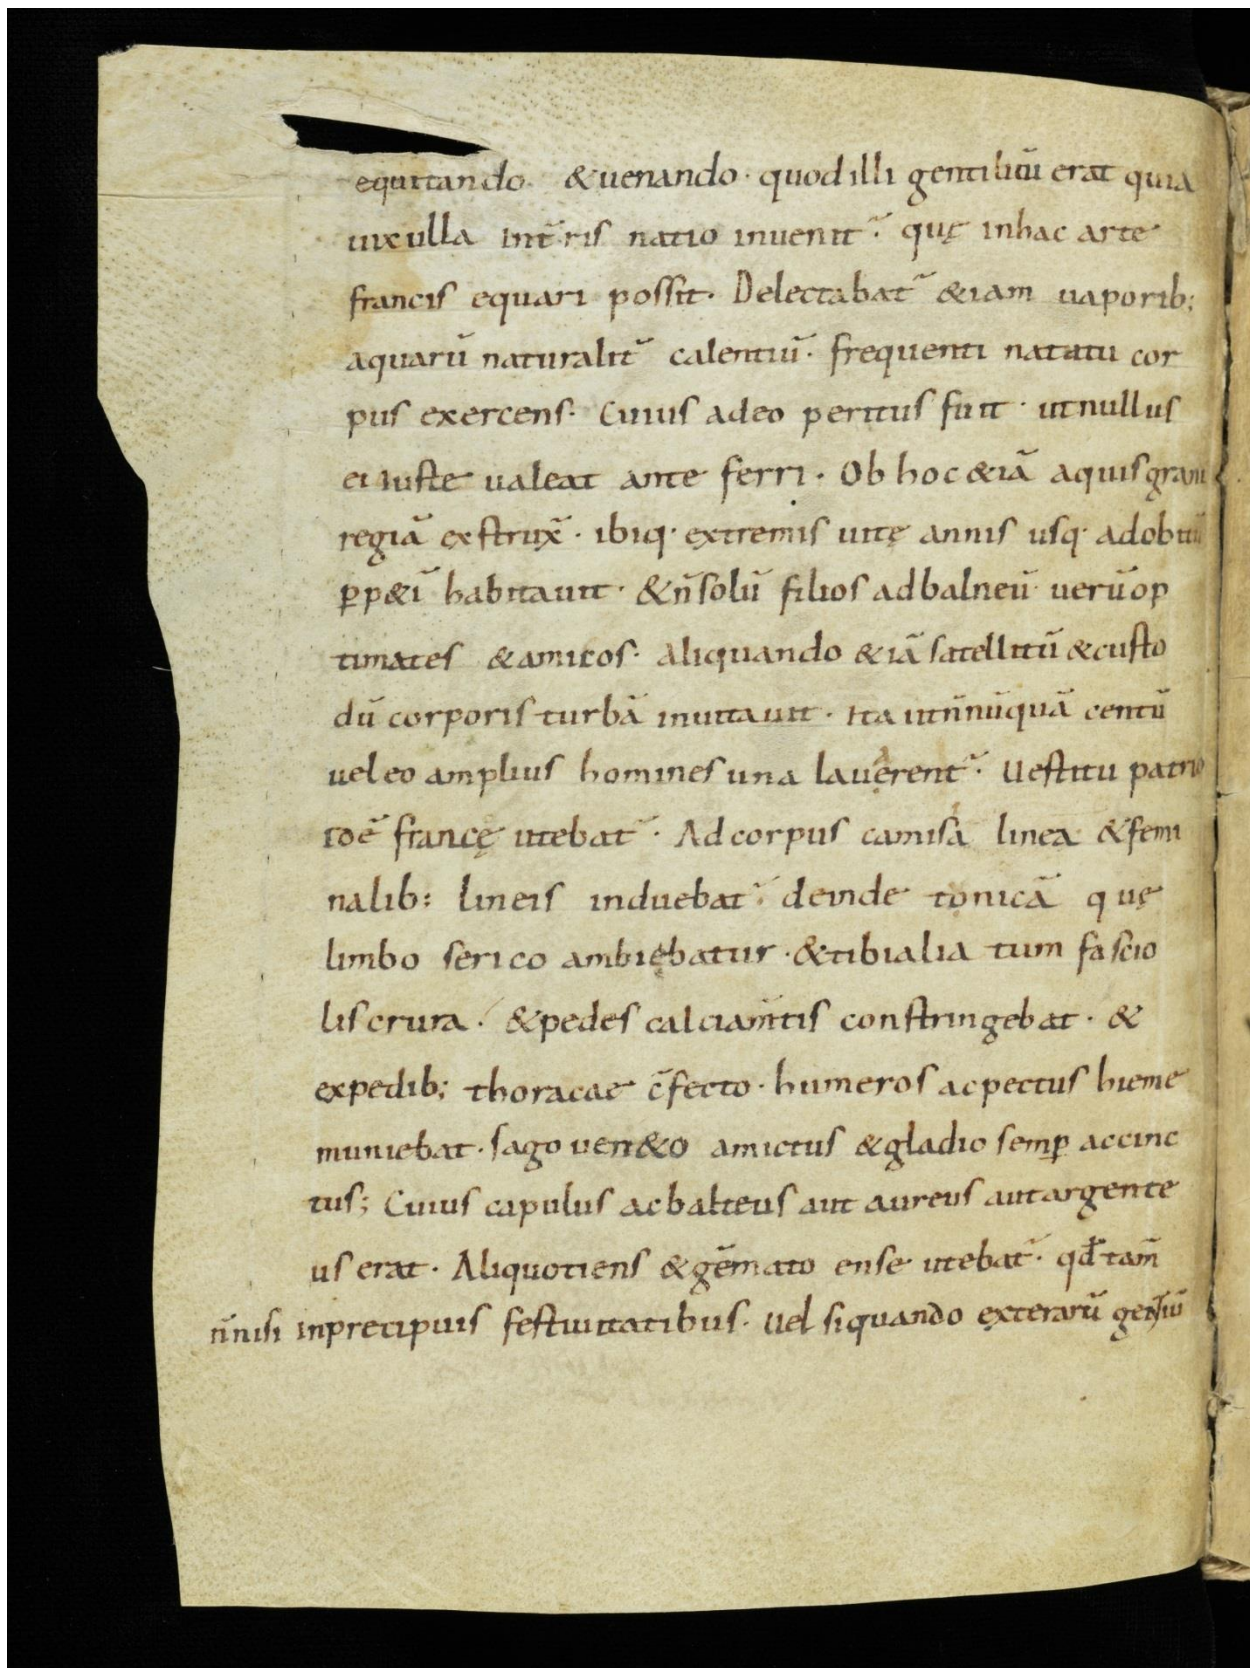 equitando. &uenando· quod illi gentiliciū erat quia
uix ulla int̄ ris natio inuenit᷑ quę inhac arte
francis equari possit· Delectabat᷑ &iam uaporib;
aquarū naturalit᷑ calentiū· frequenti natatu cor
pus exercens· Cuius adeo peritus fuit · utnullus
ei iuste ualeat ante ferri · Ob hoc &iā aquisgrani
regiā exstrux̄ · ibiq· extremis uitę annis usq· adobitū
ꝑp&ī habitauit · &n̄solū filios adbalneū uerūop
timates &amicos· Aliquando &iā satellitū &custo
dū corporis turbā inuitauit · Ita utn̄nūquā centū
uel eo amplius homines una lauerent᷑ · Uestitu patrio
idē francę utebat᷑ · Ad corpus camisā lineā &femi
nalib: lineis induebat᷑ deinde tonicā quę
limbo serico ambiebatur ·&tibialia tum fascio
lis crura · &pedes calciam̄tis constringebat · &
expedib; thoracae c̄fecto · humeros acpectus hieme
muniebat · sago uen&o amictus &gladio semꝑ accinc
tus; Cuius capulus acbalteus aut aureus autargente
us erat · Aliquotiens &gēmato ense utebat᷑ · qđ tam̄
n̄nisi inprecipuis festiuitatibus· Uel siquando exterarū gentiū